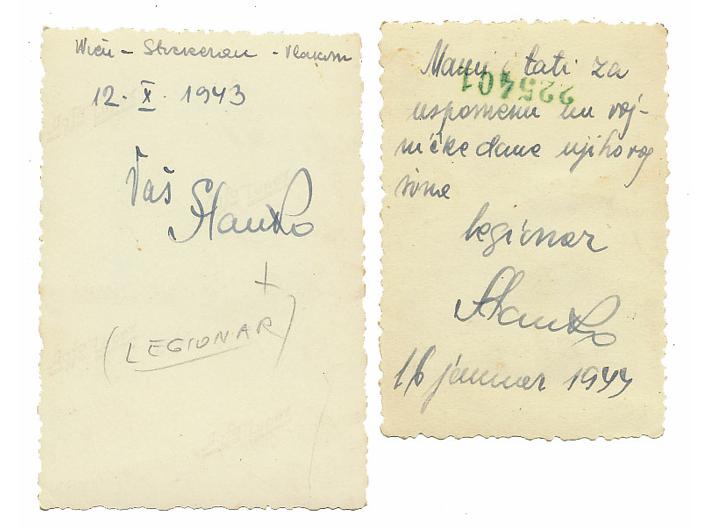 Wien – Stockerau – Vlakom
12. X. 1943
Vaš
Stanko
(LEGIONAR)
Mami i tati za
225401
uspomenu na voj-
ničke dane njihovog
sina
legionar
Stanko
16 januar 1944